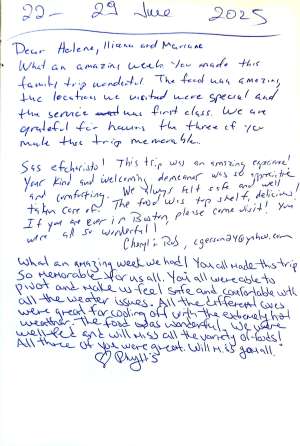 22 - 29 June 2025
Dear Helene, Iliana and Mariane
What an amazing week. You made this
family trip wonderful. The food was amazing,
the locations we visited were special and
the service was first class. We are
grateful for having the three of you
make this trip memorable.
Sas efcharisto! This trip was an amazing experience!
Your kind and welcoming demeanor was so appreciated
and comforting. We always felt safe and well
taken care of. The food was top shelf, delicious!
If you are ever in Boston, please come visit! You
were all so wonderful!
Cheryl & Bob,
What an amazing week we had! You all made this trip
so memorable for us all. You all were able to
pivot and make us feel safe and comfortable with
all the weater issues. All the different coves
were great for cooling off with the extremely hot
weather. The food was wonderful. We were
well fed and will miss all the variety of foods!
All three of you were great. Will miss you all.
Phyllis